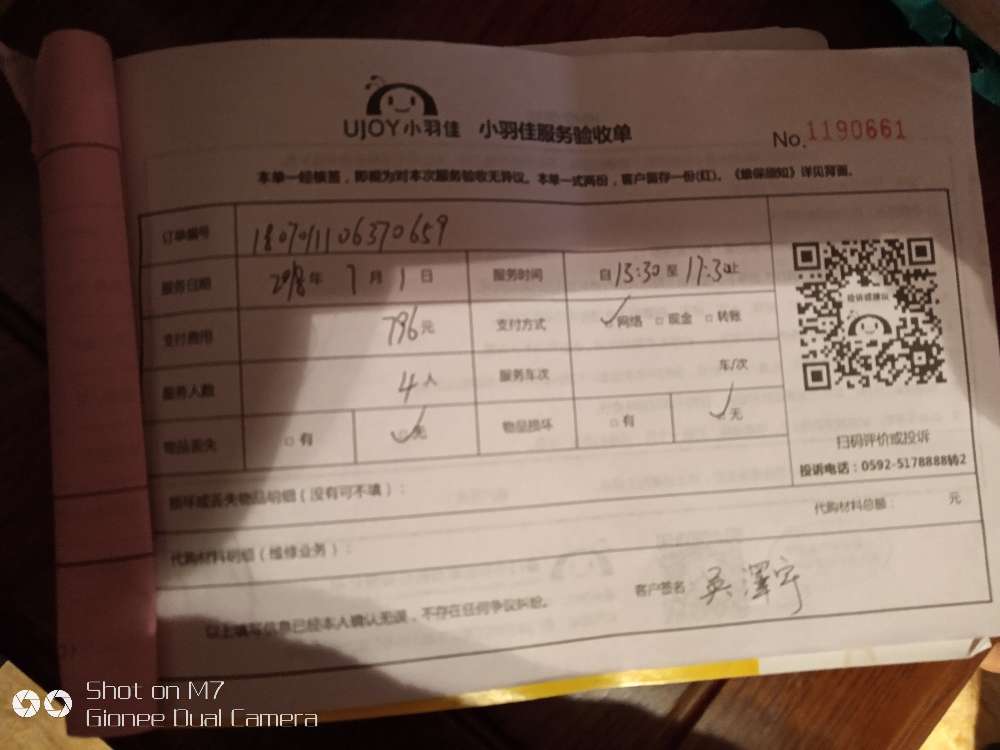 UJOY小羽佳 小羽佳服务验收单
No.1190661
本单一经核签，即视为对本次服务验收无异议。本单一式两份，客户留存一份(红)。《维保须知》详见背面。
订单编号 180701106370659
服务日期 2018年7月1日 服务时间 自15:30至17:30止
支付费用 796元 支付方式 ✓网络 □现金 □转账
服务人数 4人 服务车次 车/次
物品丢失 □有 ✓无 物品损坏 □有 ✓无
投诉或建议
扫码评价或投诉
投诉电话：0592-5178888转2
损坏或丢失物品明细（没有可不填）：
代购材料明细（维修业务）：
代购材料总额： 元
以上填写信息已经本人确认无误，不存在任何争议纠纷。
客户签名：吴澤宇
Shot on M7
Gionee Dual Camera